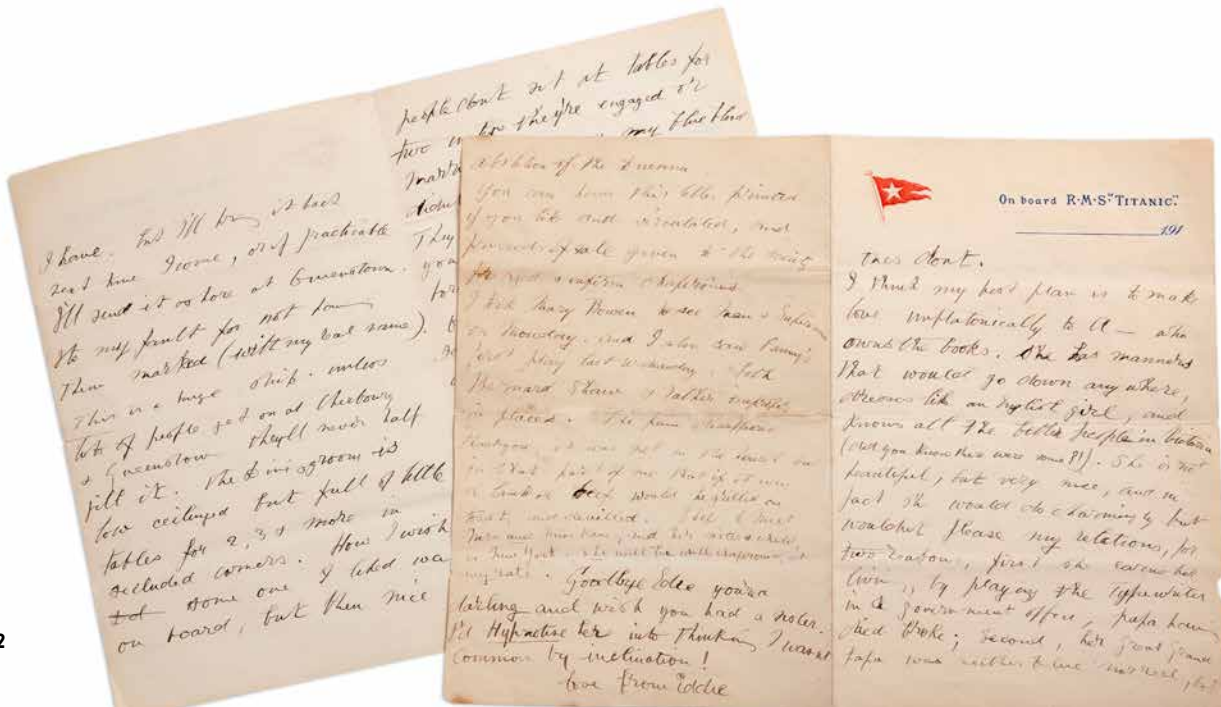 I have. But I'll bring it back
next time I come, or if practicable
I'll send it ashore at Queenstown.
Its my fault for not having
them marked (with my real name).
This is a huge ship. Unless
lots of people get on at Cherbourg
& Queenstown they'll never half
fill it. The dining room is
low ceilinged but full of little
tables for 2, 3 & more in
secluded corners. How I wish
some one I liked was
on board, but then nice
people don't sit at tables for
two unless they're engaged or
my blue blood
They
for
abolition of the Duenna.
You can have this letter printed
if you like and circulated, and
proceeds of sale given to the
I took Mary Bowen to see Man & Superman
on Monday. And I also saw Fanny's
first play last Wednesday. Both
Bernard Shaw & rather
in places. The
it was not in the least
that part of me that if it were
would be grilled on
toast, and devilled.
and her sister's child
in New York. She will be well chaperoned at
any rate. Goodbye Edie you're a
darling and wish you had a sister.
I'd Hypnotise her into thinking I wasn't
common by inclination!
love from Eddie
On board R·M·S "TITANIC".
191
I think my best plan is to make
love unplatonically to A— who
owns the books. She has manners
that would go down anywhere,
dresses like an English girl, and
knows all the better people in Victoria
(did you know there were some?!). She is not
beautiful, but very nice, and in
fact she would do charmingly but
wouldn't please my relations, for
two reasons, first she earns her
living by playing the typewriter
in a government office, papa having
died broke; second, her great grand
papa was neither
2